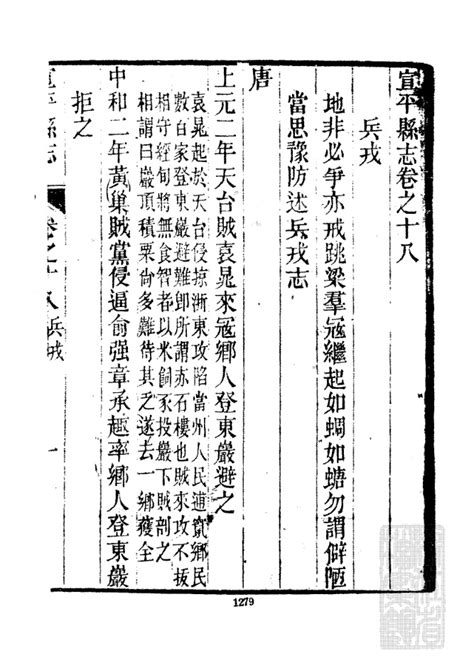 宣平縣志卷之十八
兵戎
地非必爭亦戒跳梁羣冦繼起如蜩如螗勿謂僻陋
當思豫防述兵戎志
唐
上元二年天台賊袁晁來冦鄉人登東巖避之
袁晁起於天台侵掠浙東攻陷當州人民逋竄鄉民
數百家登東巖避難卽所謂赤石樓也賊來攻不拔
相守經旬將無食智者以米飼豕投巖下賊剖之
相謂曰巖頂積粟尙多難待其乏遂去一鄉獲全
中和二年黃巢賊黨侵逼俞强章承趣率鄉人登東巖
拒之
宣平縣志
卷之十八兵戎
一
1279